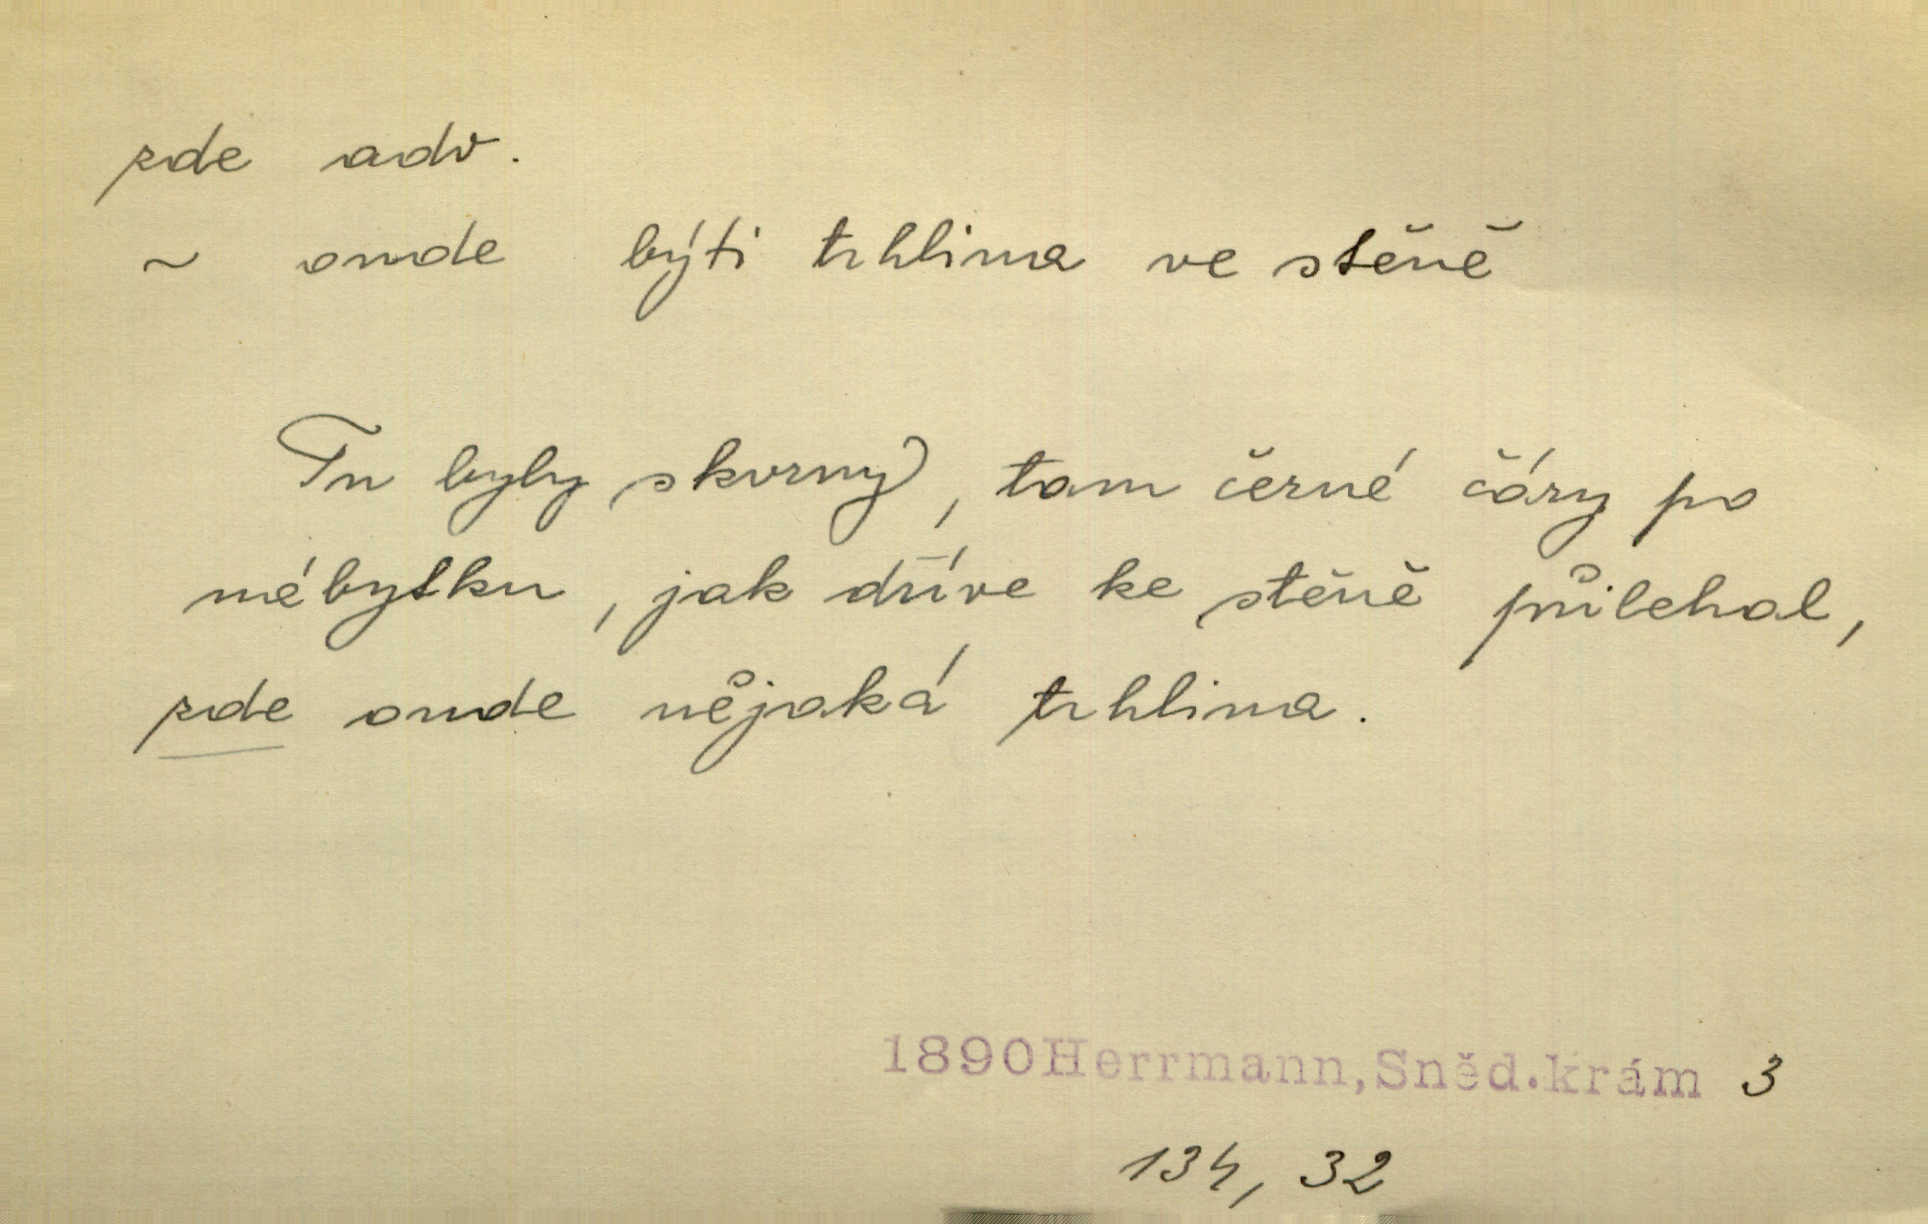 zde adv.
~ onde býti trhlina ve stěně
Tu byly skvrny, tam černé čáry po
nábytku, jak dříve ke stěně přilehal,
zde onde nějaká trhlina.
1890 Herrmann, Sněd. krám 3
134, 32